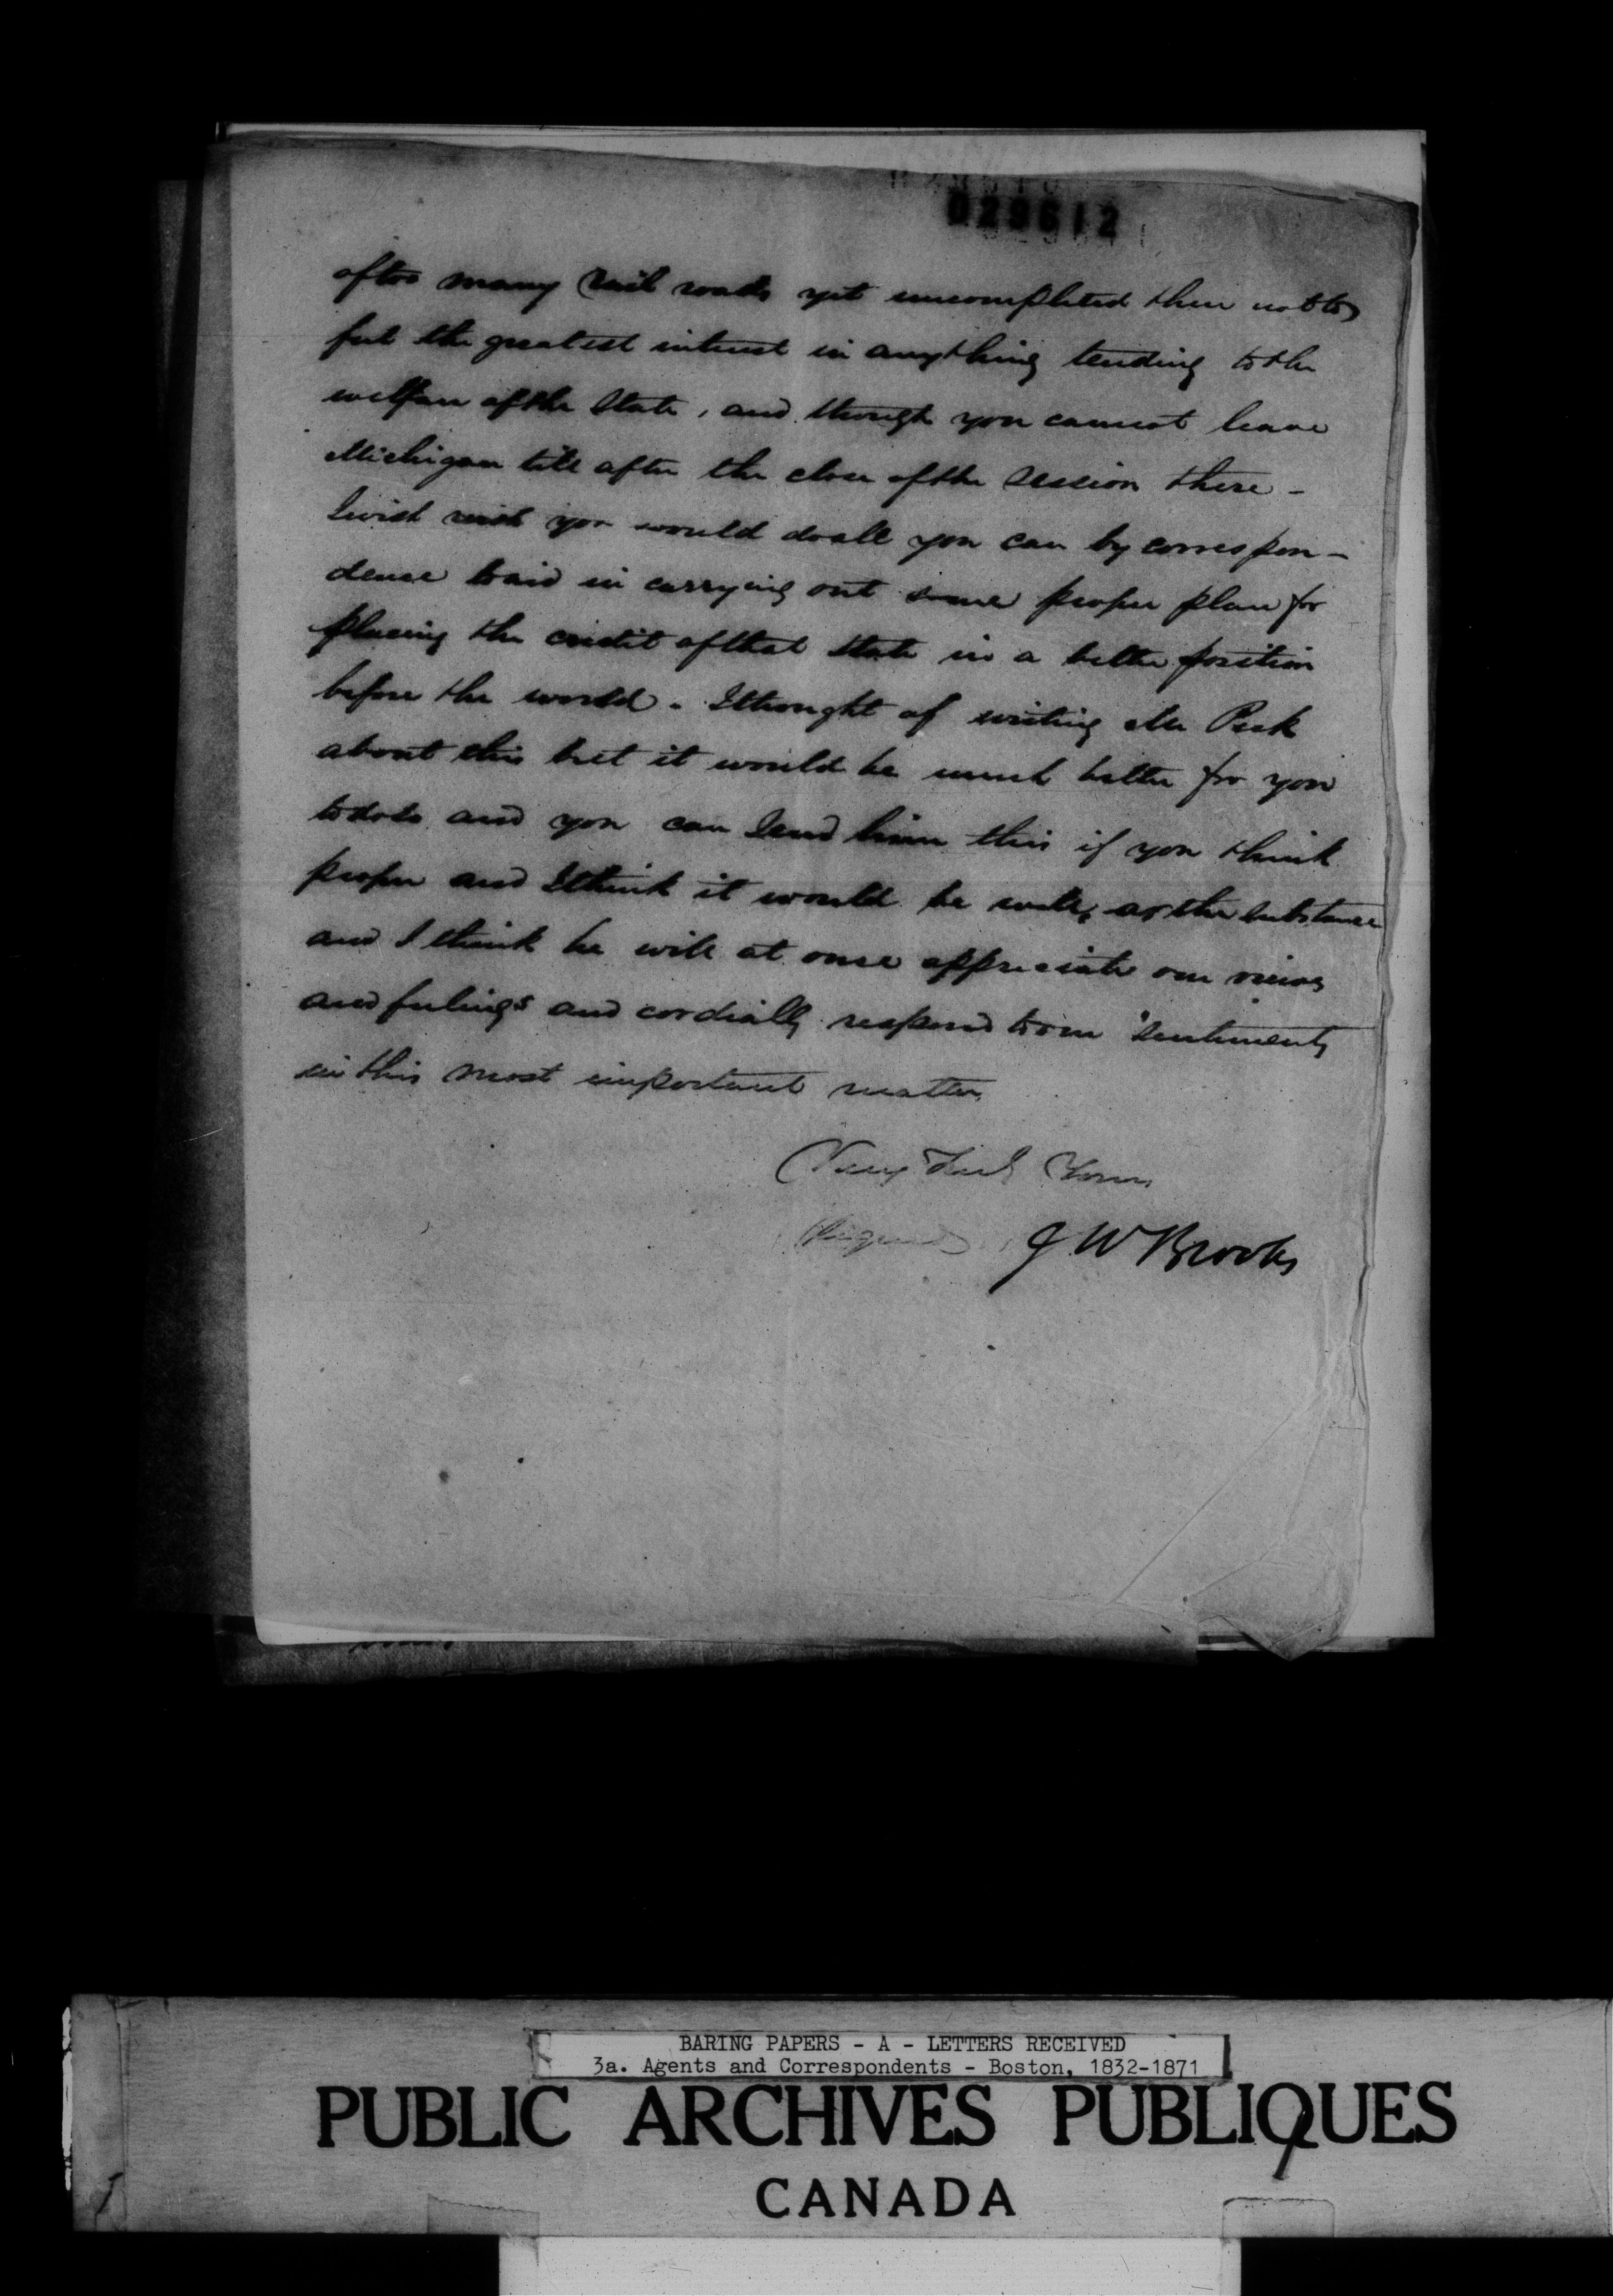 029612
of too many rail roads yet uncompleted there not to
feel the greatest interest in anything tending to the
welfare of the State, and though you cannot leave
Michigan till after the close of the Session there -
I wish you would do all you can by correspon-
dence to aid in carrying out some proper plan for
placing the credit of that State in a better position
before the world. I thought of writing Mr Peck
about this but it would be much better for you
to do so and you can send him this if you think
proper and I think it would be well, as the substance
and I think he will at once appreciate our views
and feelings and cordially respond to our sentiments
in this most important matter,
Very Truly Yours
(Signed) J W Brooks
BARING PAPERS - A - LETTERS RECEIVED
3a. Agents and Correspondents - Boston, 1832-1871
PUBLIC ARCHIVES PUBLIQUES
CANADA